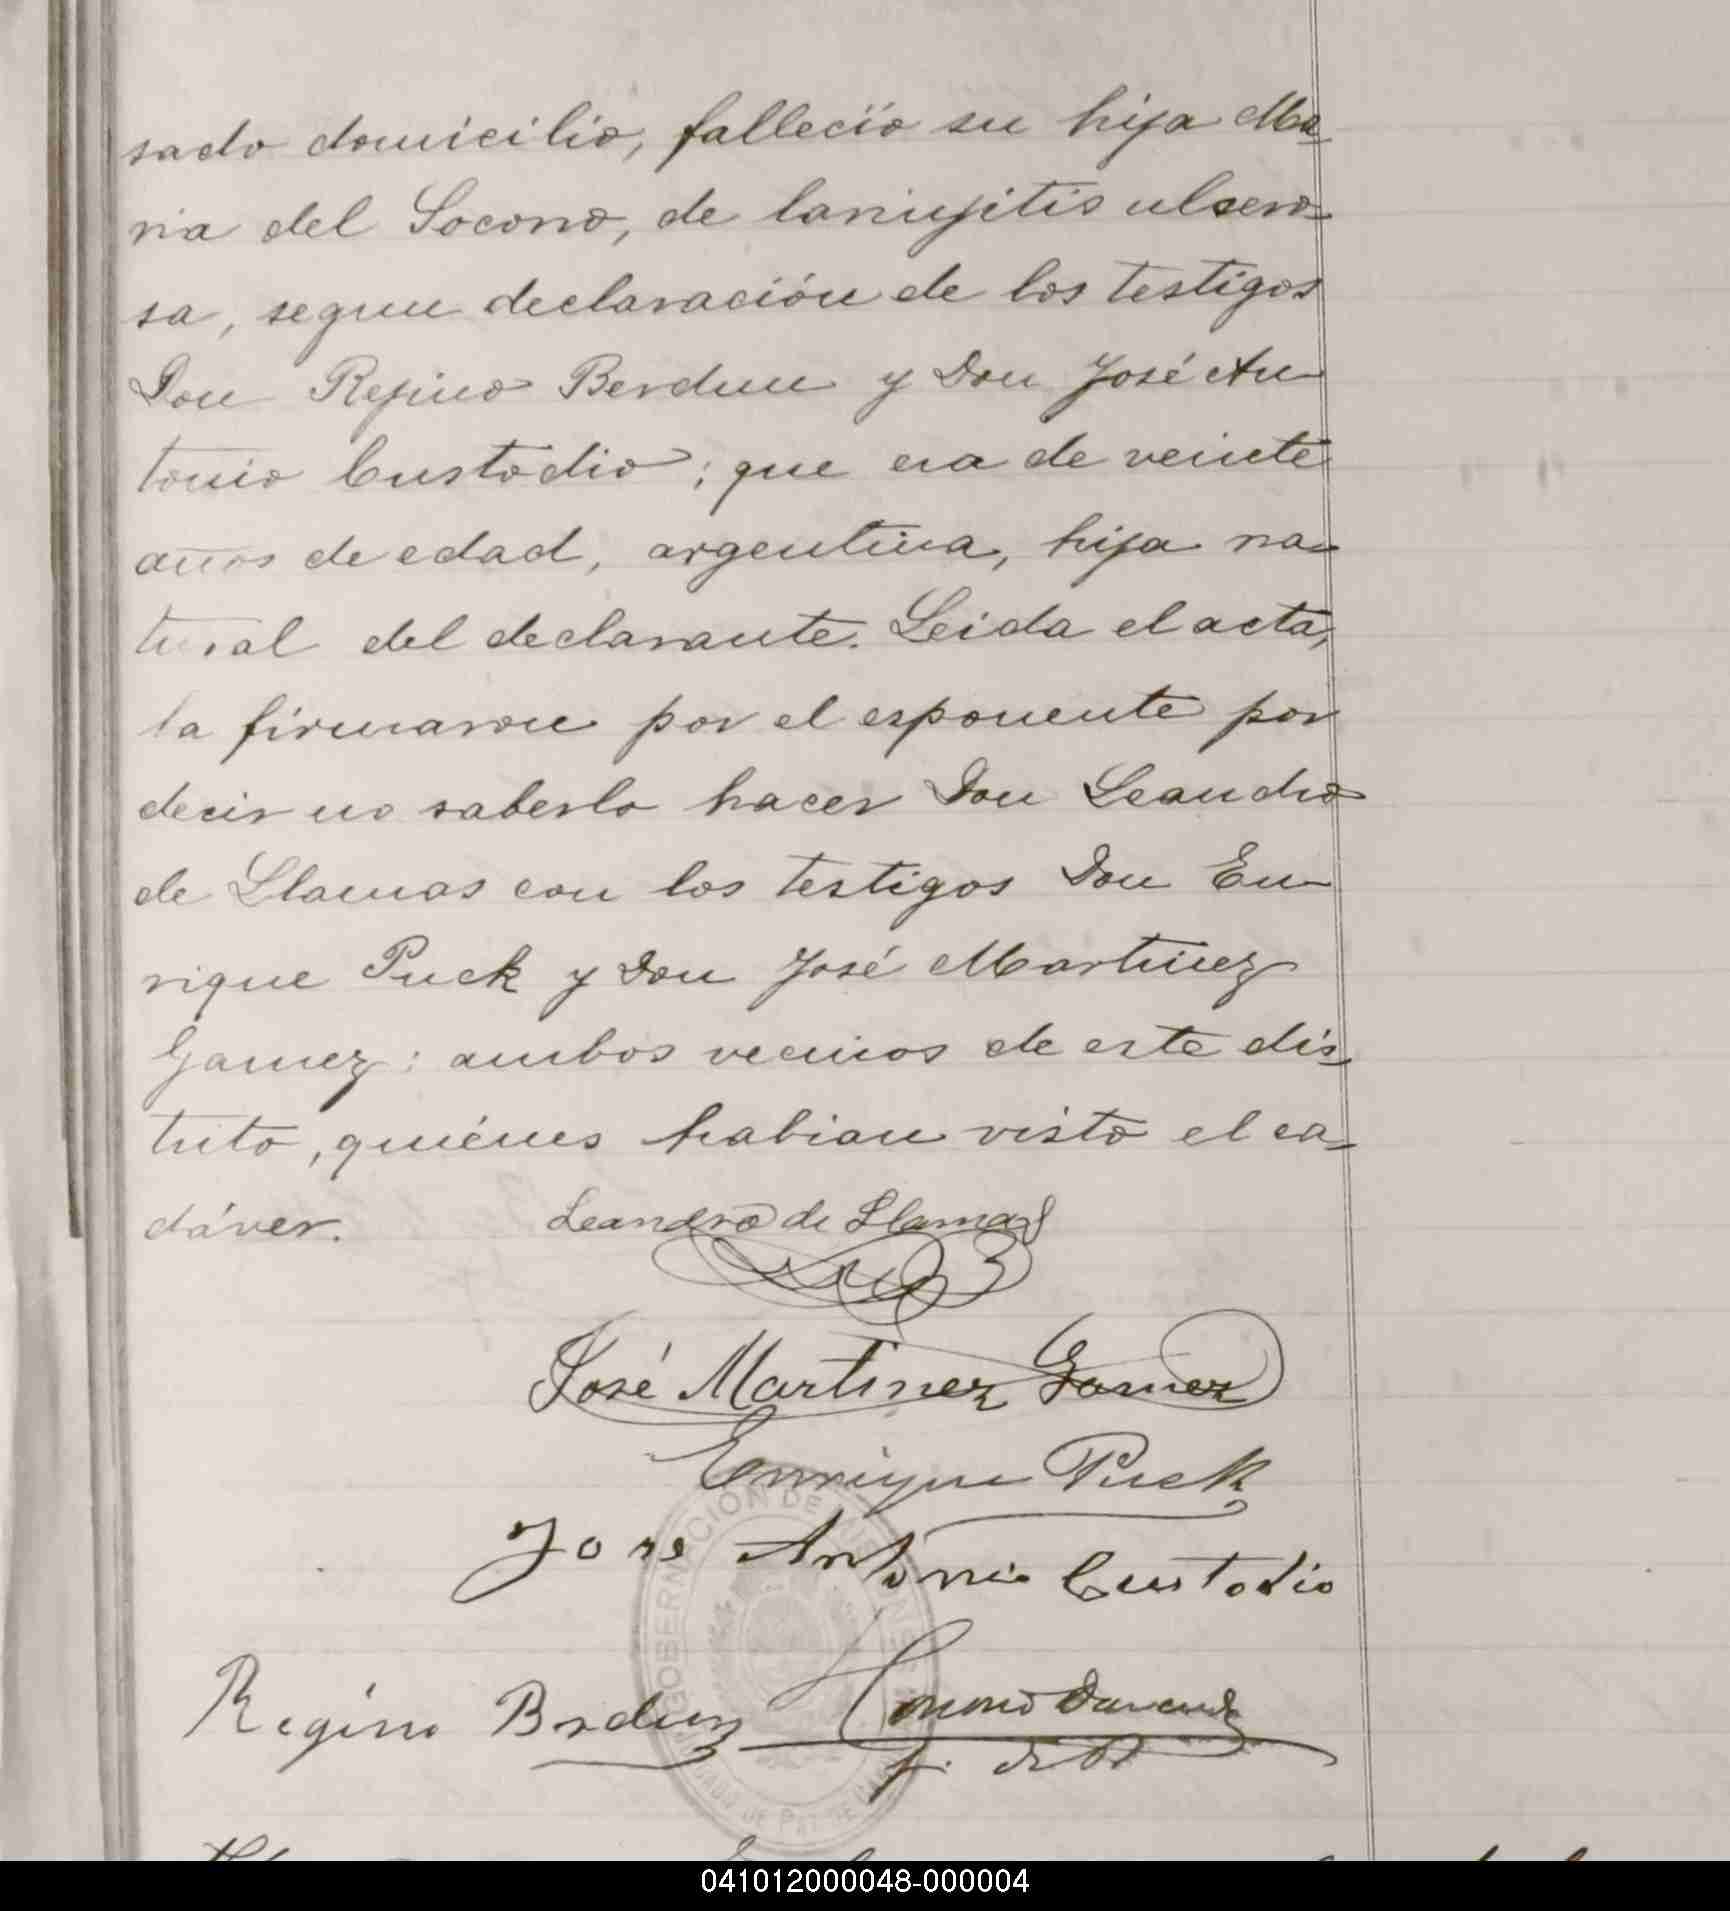 sado domicilio, fallecío su hija Ma-
ria del Socorro, de laringitis ulsero-
sa, segun declaración de los testigos
Don Regino Berdun y Don José An-
tonio Custodio; que era de veinte
años de edad, argentina, hija na-
tural del declarante. Leida el acta,
la firmaron por el esponente por
decir no saberlo hacer Don Leandro
de Llamas con los testigos Don En-
rique Puck y Don José Martinez
Gamez; ambos vecinos de este dis-
trito, quiénes habian visto el ca-
dáver.
Leandro de Llamas
José Martinez Gamez
Enrique Puck
Jose Antonio Custodio
Regino Berdun
GOBERNACION DE MISIONES
JUZGADO DE PAZ DE
041012000048-000004